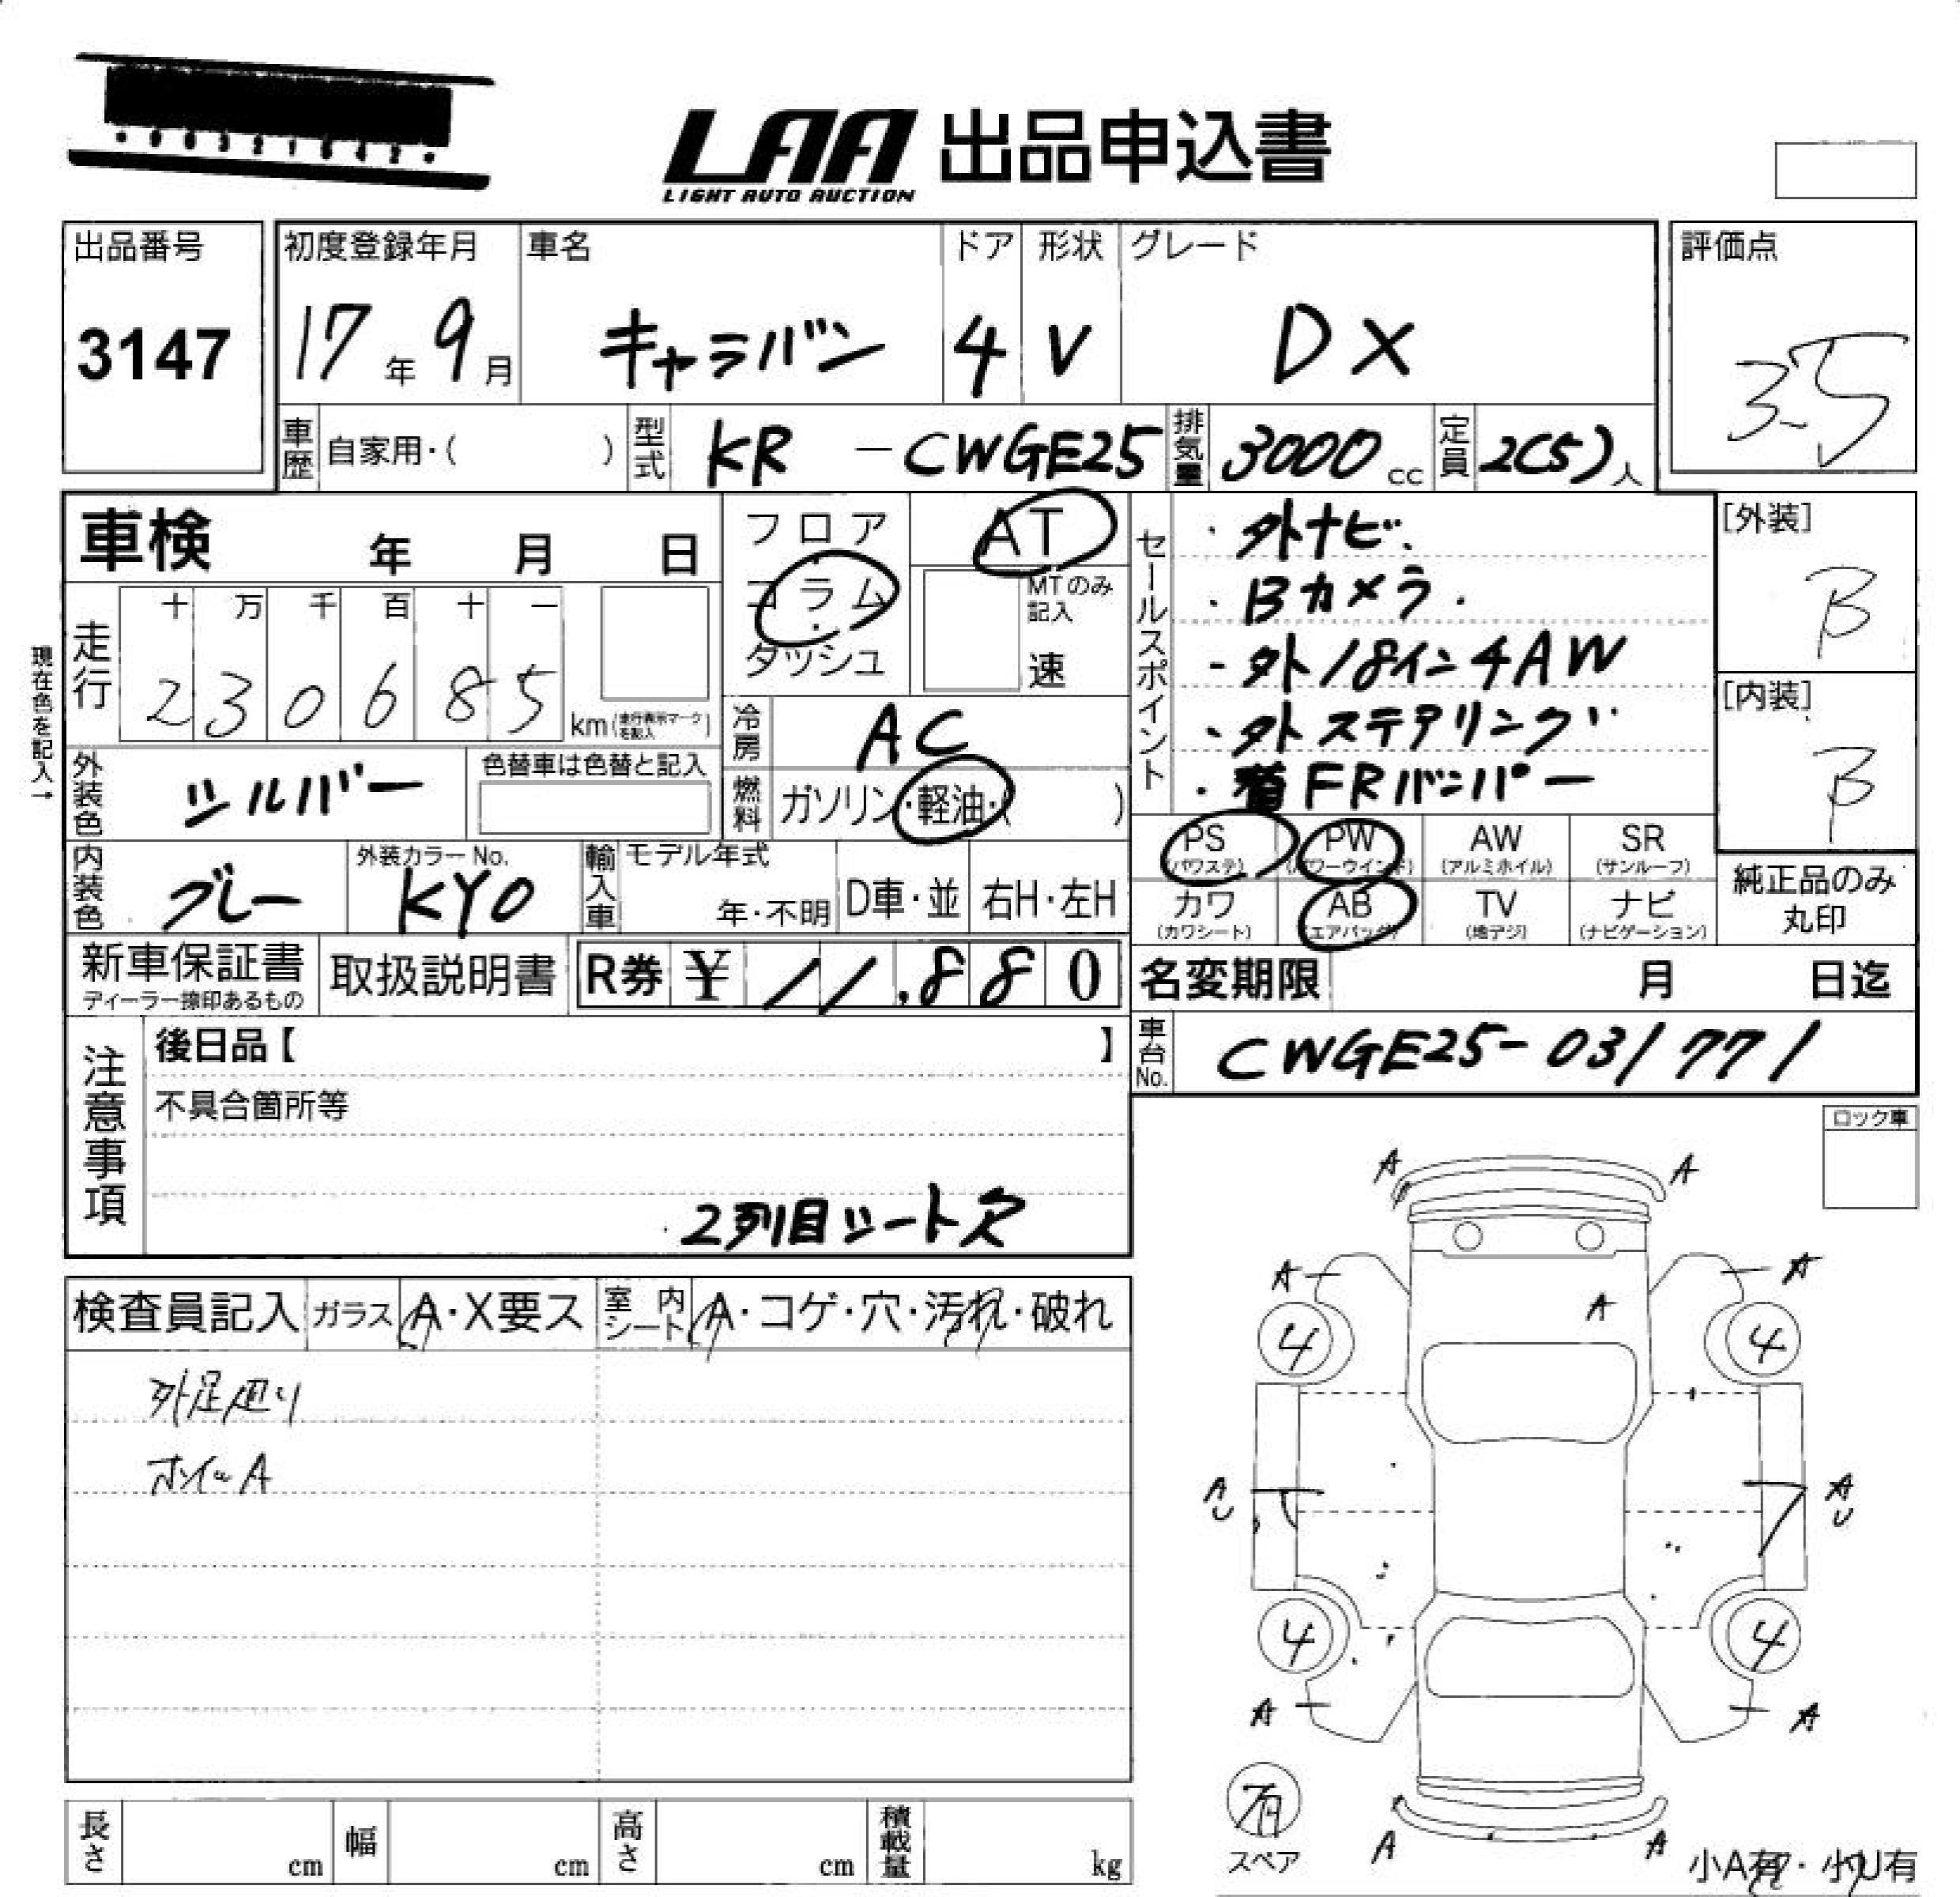 LAA 出品申込書
LIGHT AUTO AUCTION
出品番号
3147
初度登録年月
17年9月
車名
キャラバン
ドア
4
形状
V
グレード
DX
評価点
3.5
車歴 自家用・( )
型式 KR - CWGE25
排気量 3000 cc
定員 2(5)人
車検 年 月 日
現在色を記入→
走行
十 万 千 百 十 一
2 3 0 6 8 5 km(走行表示マークを記入)
フロア
・
コラム
・
ダッシュ
AT
MTのみ記入
速
冷房 AC
燃料 ガソリン・軽油・( )
外装色 シルバー
色替車は色替と記入
内装色 グレー
外装カラーNo.
KY0
輸入車 モデル年式
年・不明
D車・並
右H・左H
新車保証書
ディーラー捺印あるもの
取扱説明書
R券 ¥ 11,880
セールスポイント
・外ナビ.
・Bカメラ.
・外18イン4AW
・外ステアリング
・着FRバンパー
[外装]
B
[内装]
B
PS (パワステ)
PW (パワーウインド)
AW (アルミホイル)
SR (サンルーフ)
カワ (カワシート)
AB (エアバッグ)
TV (地デジ)
ナビ (ナビゲーション)
純正品のみ
丸印
名変期限 月 日迄
車台No. CWGE25-031771
注意事項
後日品【 】
不具合箇所等
2列目シート穴
検査員記入
ガラス A・X要ス
室内シート A・コゲ・穴・汚れ・破れ
外足廻り
ホイールA
ロック車
A A
A A
A
4 4
A U
A U
4 4
A A
有
スペア
A A
小A有・小U有
長さ cm
幅 cm
高さ cm
積載量 kg